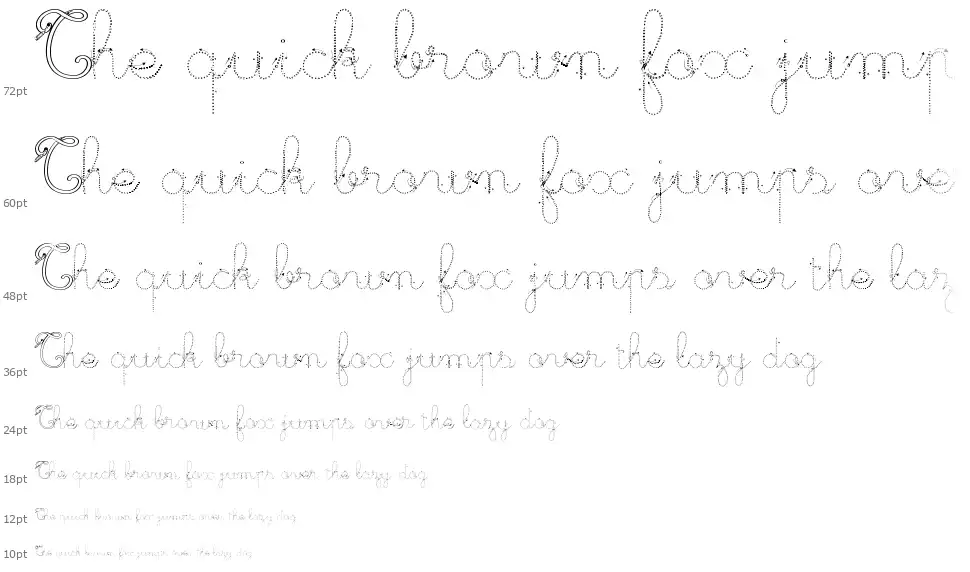 The quick brown fox jump
72pt
The quick brown fox jumps ove
60pt
The quick brown fox jumps over the laz
48pt
The quick brown fox jumps over the lazy dog
36pt
The quick brown fox jumps over the lazy dog
24pt
The quick brown fox jumps over the lazy dog
18pt
The quick brown fox jumps over the lazy dog
12pt
The quick brown fox jumps over the lazy dog
10pt